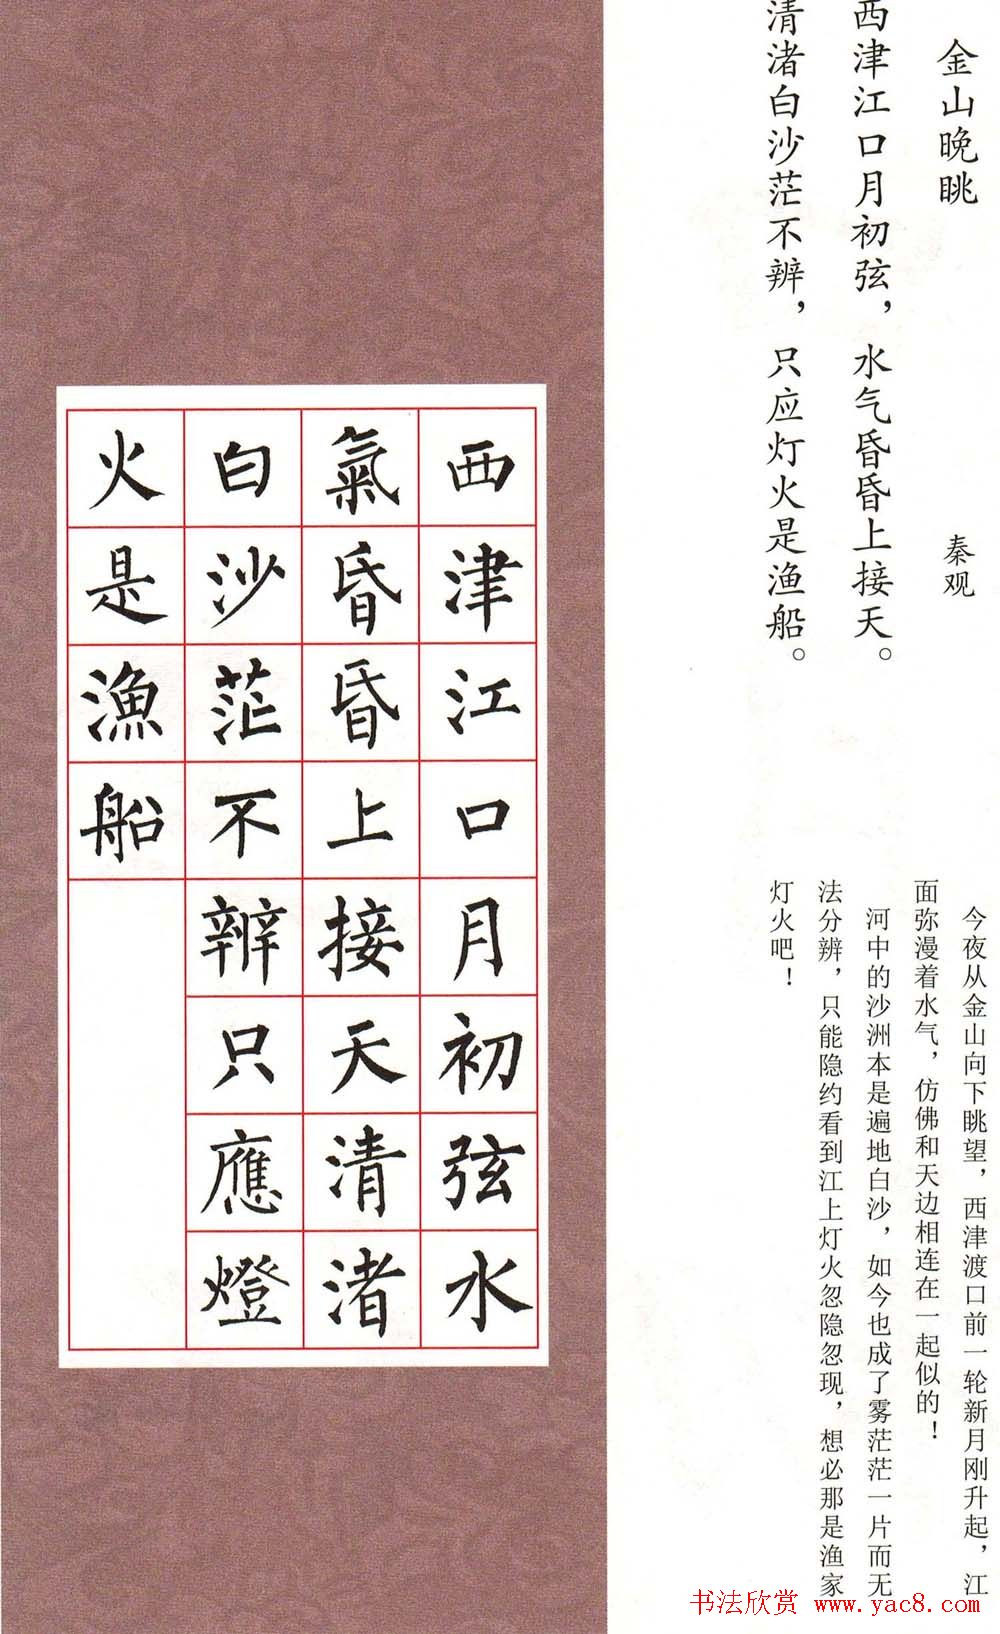 金山晚眺
秦观
西津江口月初弦，水气昏昏上接天。
清渚白沙茫不辨，只应灯火是渔船。
今夜从金山向下眺望，西津渡口前一轮新月刚升起，江
面弥漫着水气，仿佛和天边相连在一起似的！
河中的沙洲本是遍地白沙，如今也成了雾茫茫一片而无
法分辨，只能隐约看到江上灯火忽隐忽现，想必那是渔家
灯火吧！
西津江口月初弦水
氣昏昏上接天清渚
白沙茫不辨只應燈
火是漁船
书法欣赏 www.yac8.com